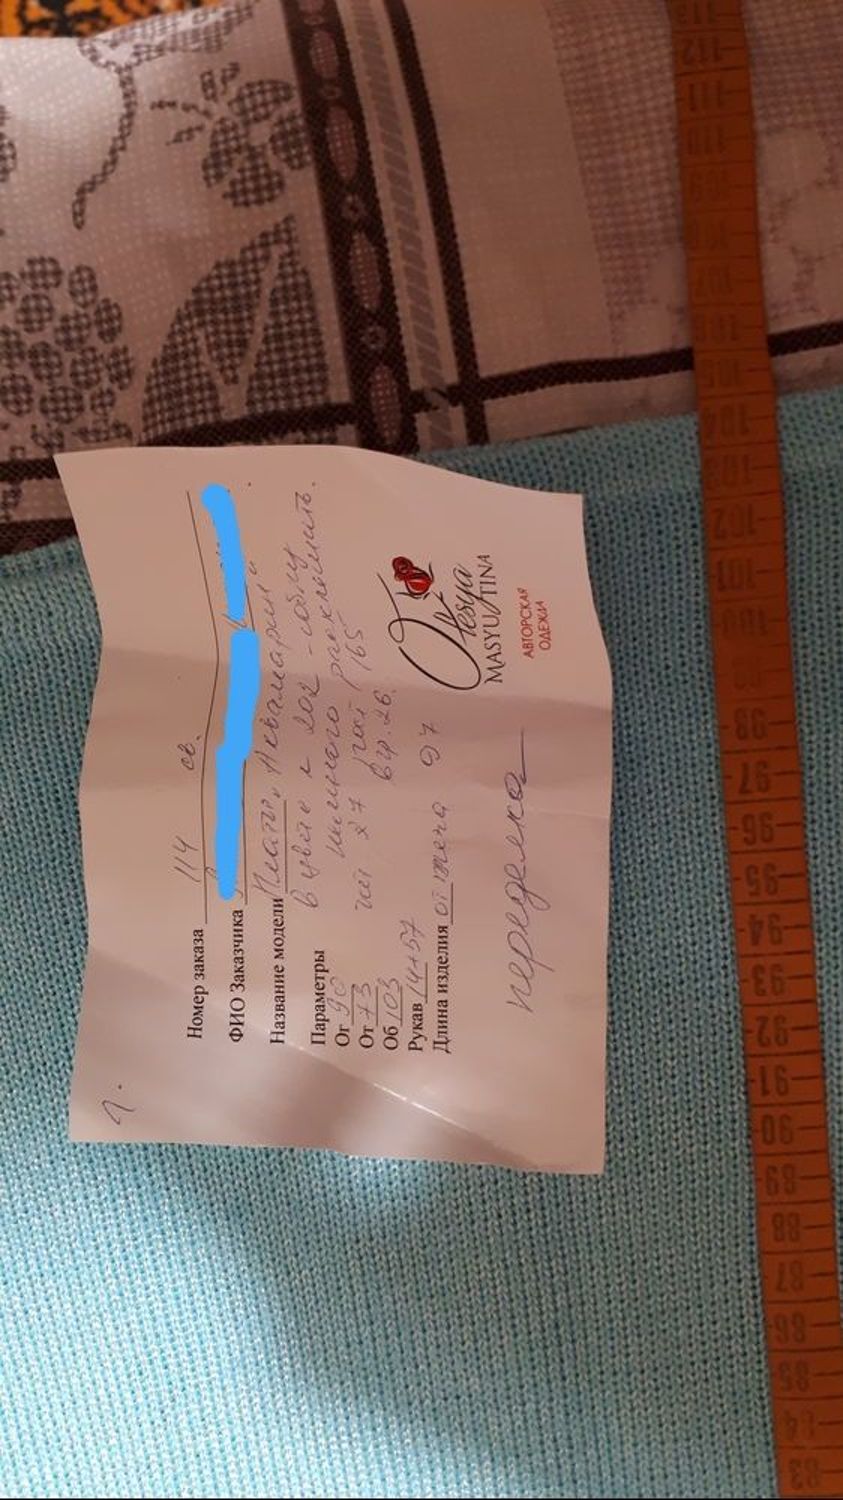 Номер заказа 114 св.
ФИО Заказчика
Название модели Платье „Аквамарин"
в цвете к 202 - юбку
Параметры
Ог 90
От 73
Об 103
Рукав 14+57
Длина изделия от плеча 97
27 165
переделка
Olesya
MASYUTINA
АВТОРСКАЯ
ОДЕЖДА
113
112
111
110
109
107
105
104
103
102
101
100
99
98
97
96
95
94
93
92
91
90
89
88
87
86
85
84
83